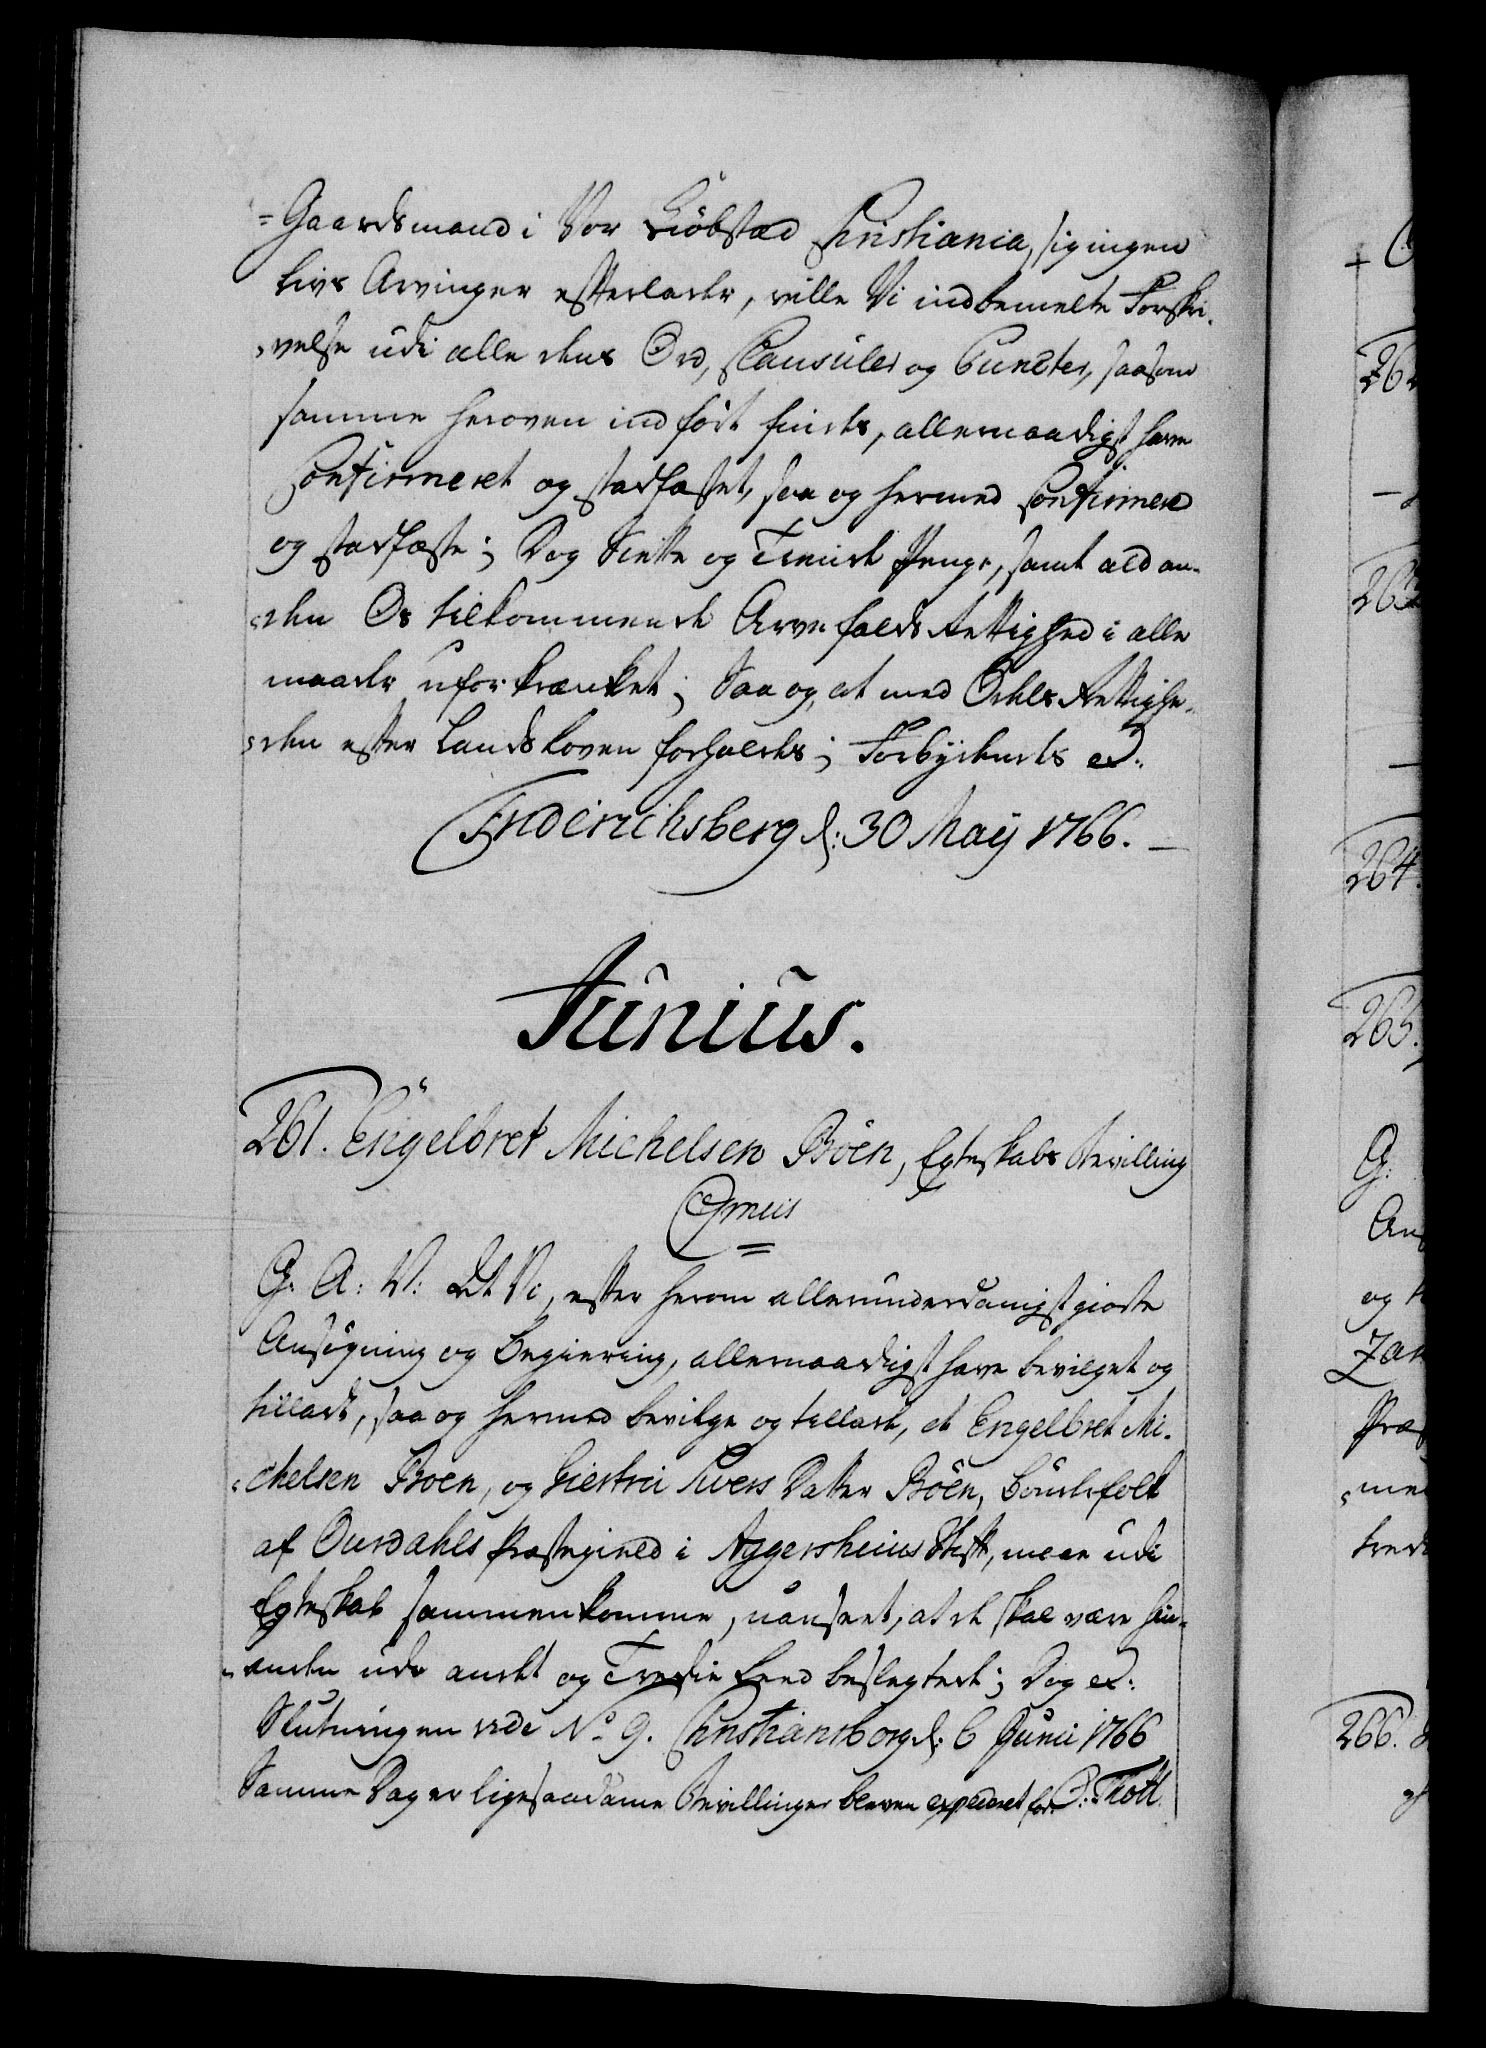 =Gaardsmand i Vor Kiöbstad Christiania, sig ingen
Livs Arvinger efterlader, ville Vi indbemelte Forskri¬
velse udi alle dens Ord, Clausuler og Puncter, saasom
samme heroven indfört findes, allernaadigst have
Confirmeret og stadfæstet, saa og hermed Confirmere
og stadfæste; Dog Siette og Tiende Penge, samt ald an¬
den Os tilkommende Arvefalds Rettighed i alle
maader uforkrænket; Saa og, at med Odels Rettighe¬
den efter Landsloven forholdes; Forbydendes etc:
Friderichsberg d: 30 Maij 1766.
Junius.
261. Engelbret Michelsen Böen, Egteskabs Bevilling
Gratis
G. A: V: At Vi, efter herom allerunderdanigst giorte
Ansögning og Begiering, allernaadigst have bevilget og
tilladt, saa og hermed bevilge og tillade, at Engelbret Mi¬
chelsen Böen, og Kiestru Sivers Datter Böen, Böndefolk
af Ourdahls Præstegield i Aggershuus Stift, maae udi
Egteskab sammenkomme, uanseet, at de skal være hin¬
anden udi andet og Tredie Leed beslegtede; Dog etc:
Slutningen vide No 9. Christiansborg d: 6 Junii 1766
Samme Dag er ligesaadanne Bevillinger bleven expederet for O: Thott
264.
265.
G:
og
266.